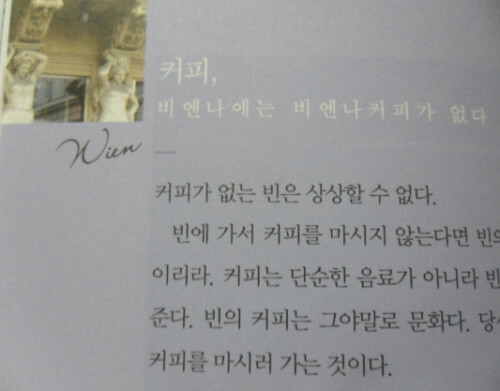 커피,
비엔나에는 비엔나커피가 없다
Wien
커피가 없는 빈은 상상할 수 없다.
빈에 가서 커피를 마시지 않는다면 빈의
이리라. 커피는 단순한 음료가 아니라 빈
준다. 빈의 커피는 그야말로 문화다. 당
커피를 마시러 가는 것이다.